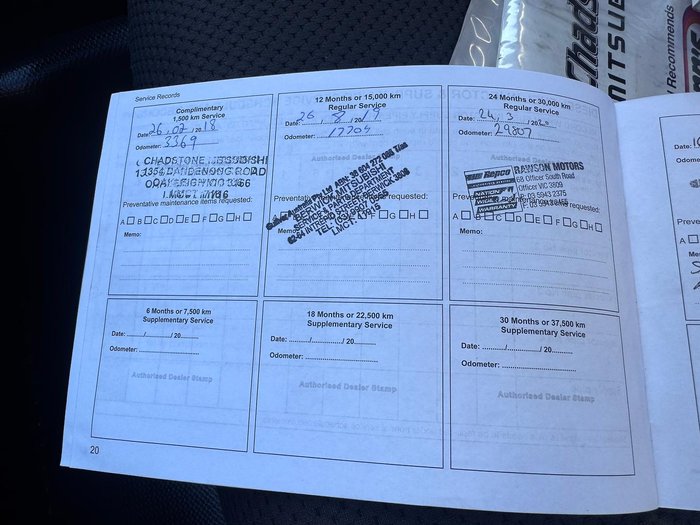 Service Records
Complimentary
1,500 km Service
Date: 26, 02 / 20 18
Odometer: 3369
CHADSTONE MITSUBISHI
DANDENONG ROAD
OAKLEIGH VIC 3166
LMCT
Preventative maintenance items requested:
A □ B □ C □ D □ E □ F □ G □ H □
Memo:
12 Months or 15,000 km
Regular Service
Date: 26, 8, /20 19
Odometer: 17704
Pty Ltd ABN: 38 664 272 088 T/as
BERWICK MITSUBISHI
SERVICE PARTS DEPARTMENT
TEL:
LMCT:
items requested:
G □ H □
Memo:
24 Months or 30,000 km
Regular Service
Date: 24, 3 /20 20
Odometer: 29807
Authorised Dealer
Repco
NATION
WARRANTY
RAWSON MOTORS
68 Officer South Road
Officer VIC 3809
P: 03 5943 2375
F: 03 5943
Preventative maintenance items requested:
A □ B □ C □ D □ E □ F □ G □ H □
Memo:
6 Months or 7,500 km
Supplementary Service
Date: ....../....../ 20......
Odometer: ......................
Authorised Dealer Stamp
18 Months or 22,500 km
Supplementary Service
Date: ....../....../ 20......
Odometer: ......................
Authorised Dealer Stamp
30 Months or 37,500 km
Supplementary Service
Date: ....../....../ 20......
Odometer: ......................
Authorised Dealer Stamp
20
Chads
MITSUB
Recommends